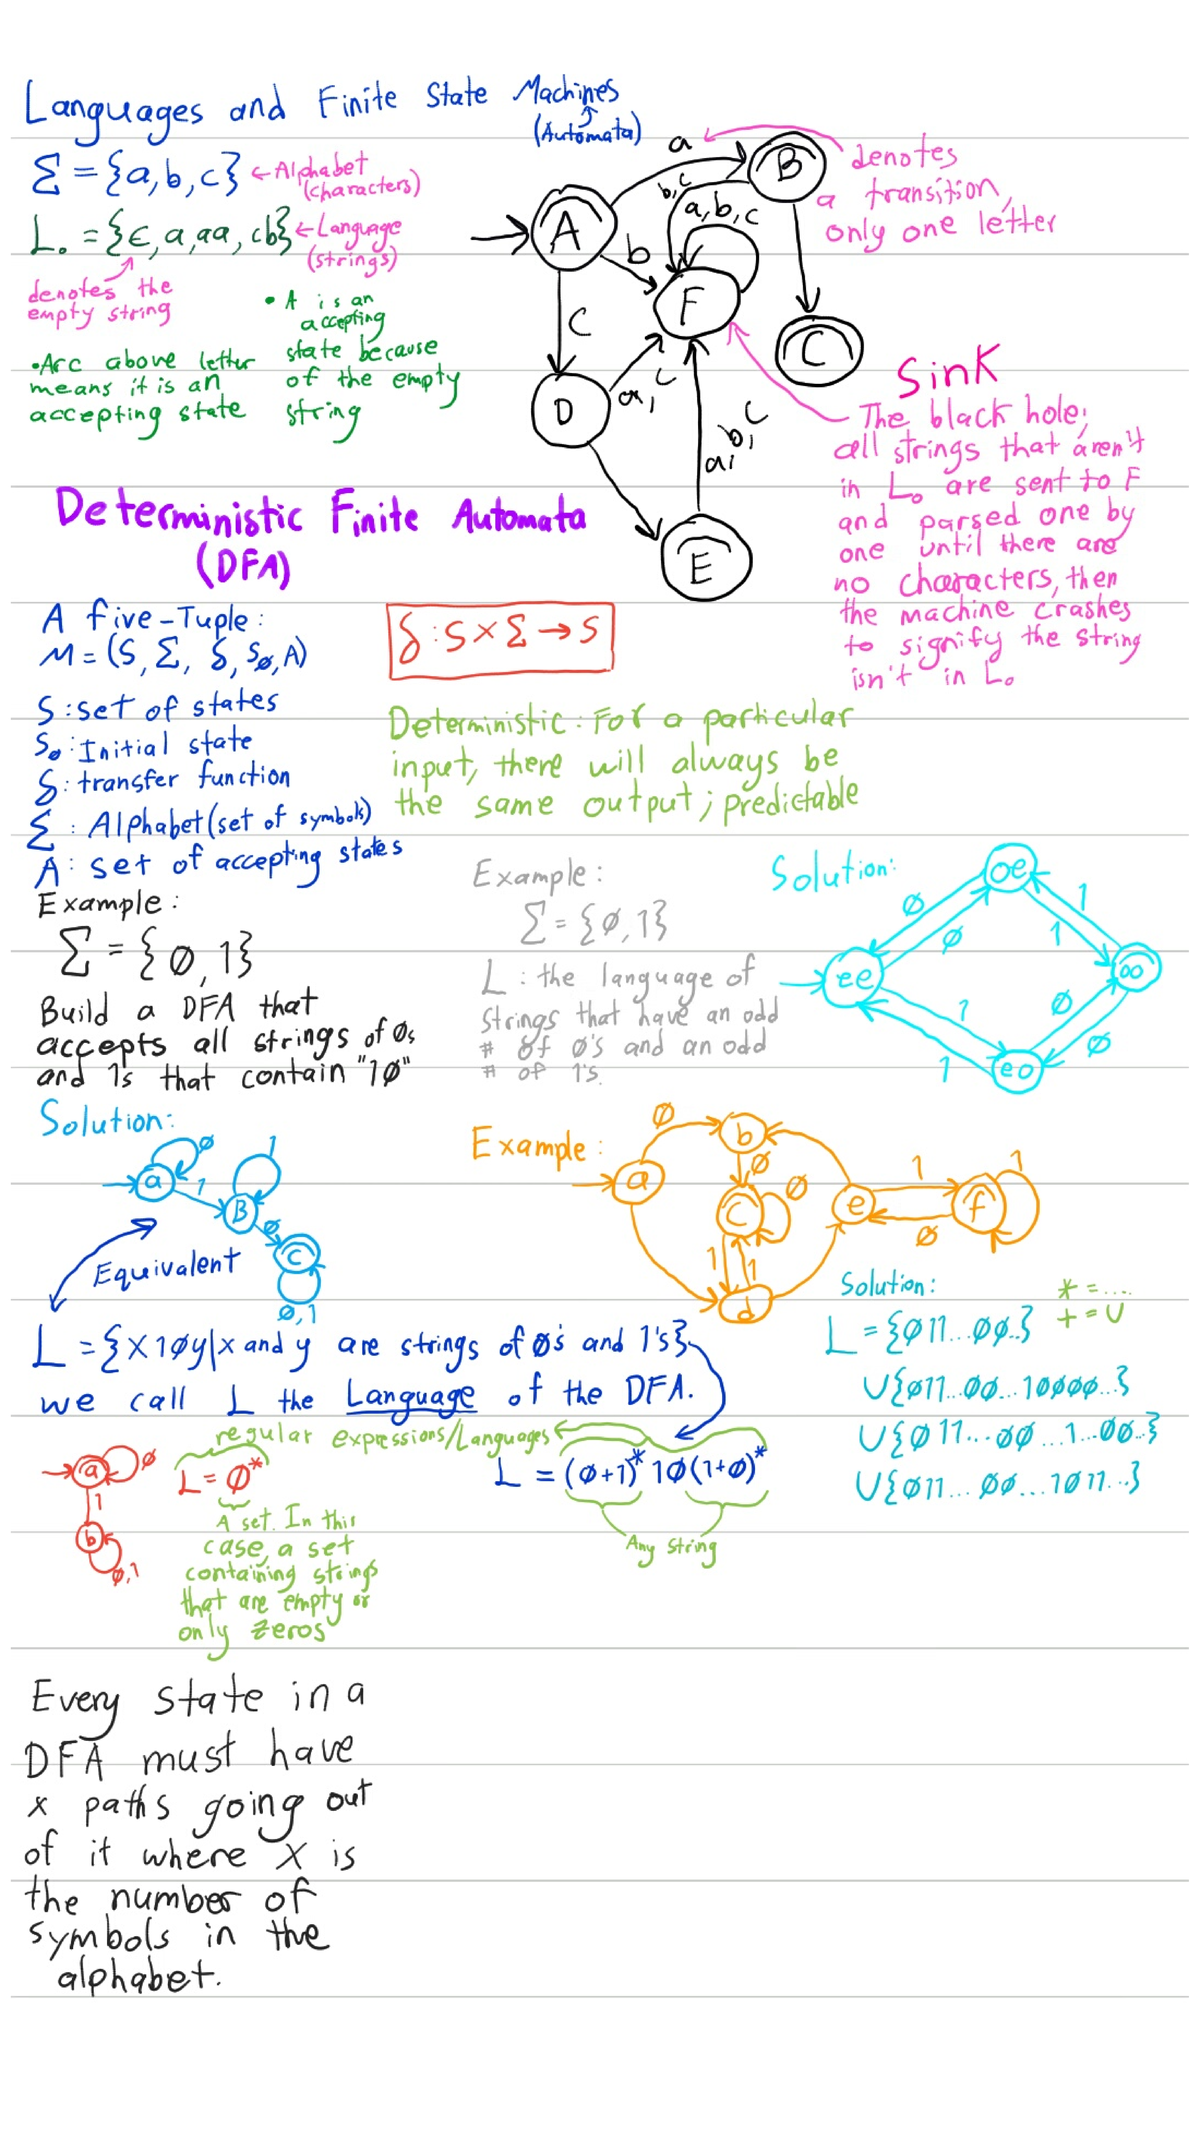 Languages and Finite State Machines
(Automata)
Σ = {a,b,c} ← Alphabet
(characters)
L₀ = {ϵ, a, aa, cb} ← Language
(strings)
denotes the
empty string
• A is an
accepting
state because
of the empty
string
• Arc above letter
means it is an
accepting state
a
B
denotes
a transition,
only one letter
b,c
a,b,c
A
b
F
c
C
D
a,c
a,b,c
E
Sink
The black hole;
all strings that aren't
in L₀ are sent to F
and parsed one by
one until there are
no characters, then
the machine crashes
to signify the string
isn't in L₀
Deterministic Finite Automata
(DFA)
A five-Tuple:
M = (S, Σ, δ, S∅, A)
δ : S × Σ → S
S : set of states
S₀ : Initial state
δ : transfer function
Σ : Alphabet (set of symbols)
A : set of accepting states
Deterministic : For a particular
input, there will always be
the same output; predictable
Example :
Σ = {∅, 1}
Build a DFA that
accepts all strings of ∅s
and 1s that contain "1∅"
Example :
Σ = {∅, 1}
L : the language of
strings that have an odd
# of ∅'s and an odd
# of 1's.
Solution:
oe
∅
1
∅
1
ee
oo
1
∅
∅
1
eo
Solution:
∅
1
a
1
B
∅
C
∅,1
Equivalent
Example :
∅
b
a
∅
∅
C
e
1
f
1
∅
1
1
d
L = {x1∅y|x and y are strings of ∅'s and 1's}
we call L the Language of the DFA.
Solution:
* = ....
+ = ∪
L = {∅11...∅∅..}
∪{∅11...∅∅...1∅∅∅∅...}
∪{∅11...∅∅...1...∅∅..}
∪{∅11...∅∅...1∅11...}
regular expressions/Languages
a
∅
1
b
∅,1
L = ∅*
A set. In this
case, a set
containing strings
that are empty or
only zeros
L = (∅+1)* 1∅(1+∅)*
Any String
Every state in a
DFA must have
x paths going out
of it where x is
the number of
symbols in the
alphabet.